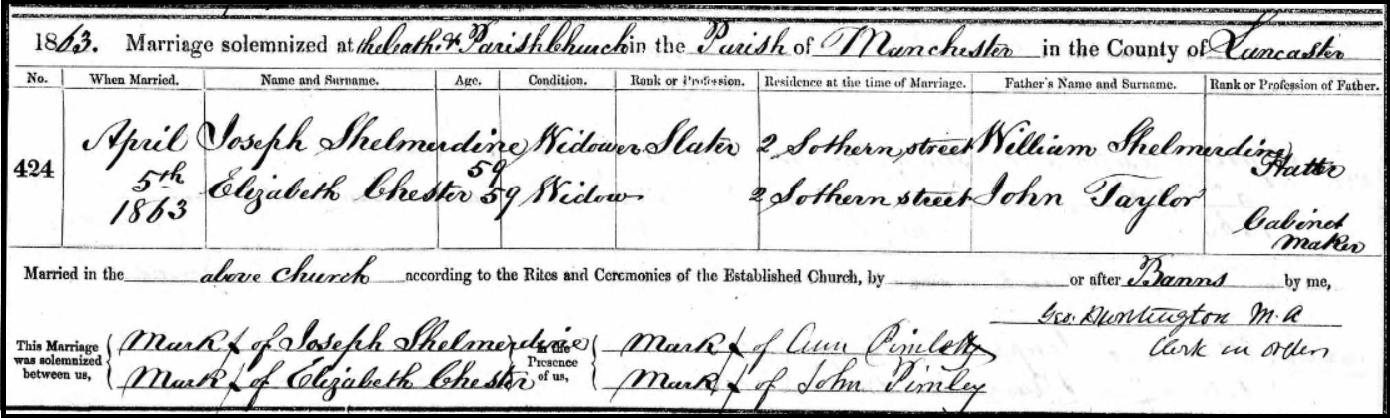 1863. Marriage solemnized at the Cath.l & Parish Church in the Parish of Manchester in the County of Lancaster
No. When Married. Name and Surname. Age. Condition. Rank or Profession. Residence at the time of Marriage. Father's Name and Surname. Rank or Profession of Father.
424 April 5th 1863 Joseph Shelmerdine 59 Widower Slater 2 Sothern street William Shelmerdine Hatter
Elizabeth Chester 59 Widow 2 Sothern street John Taylor Cabinet Maker
Married in the above church according to the Rites and Ceremonies of the Established Church, by or after Banns by me,
Geo. Huntington M.A
Clerk in orders
This Marriage was solemnized between us, Mark X of Joseph Shelmerdine in the Presence of us, Mark X of Ann
Mark X of Elizabeth Chester Mark X of John Pimley